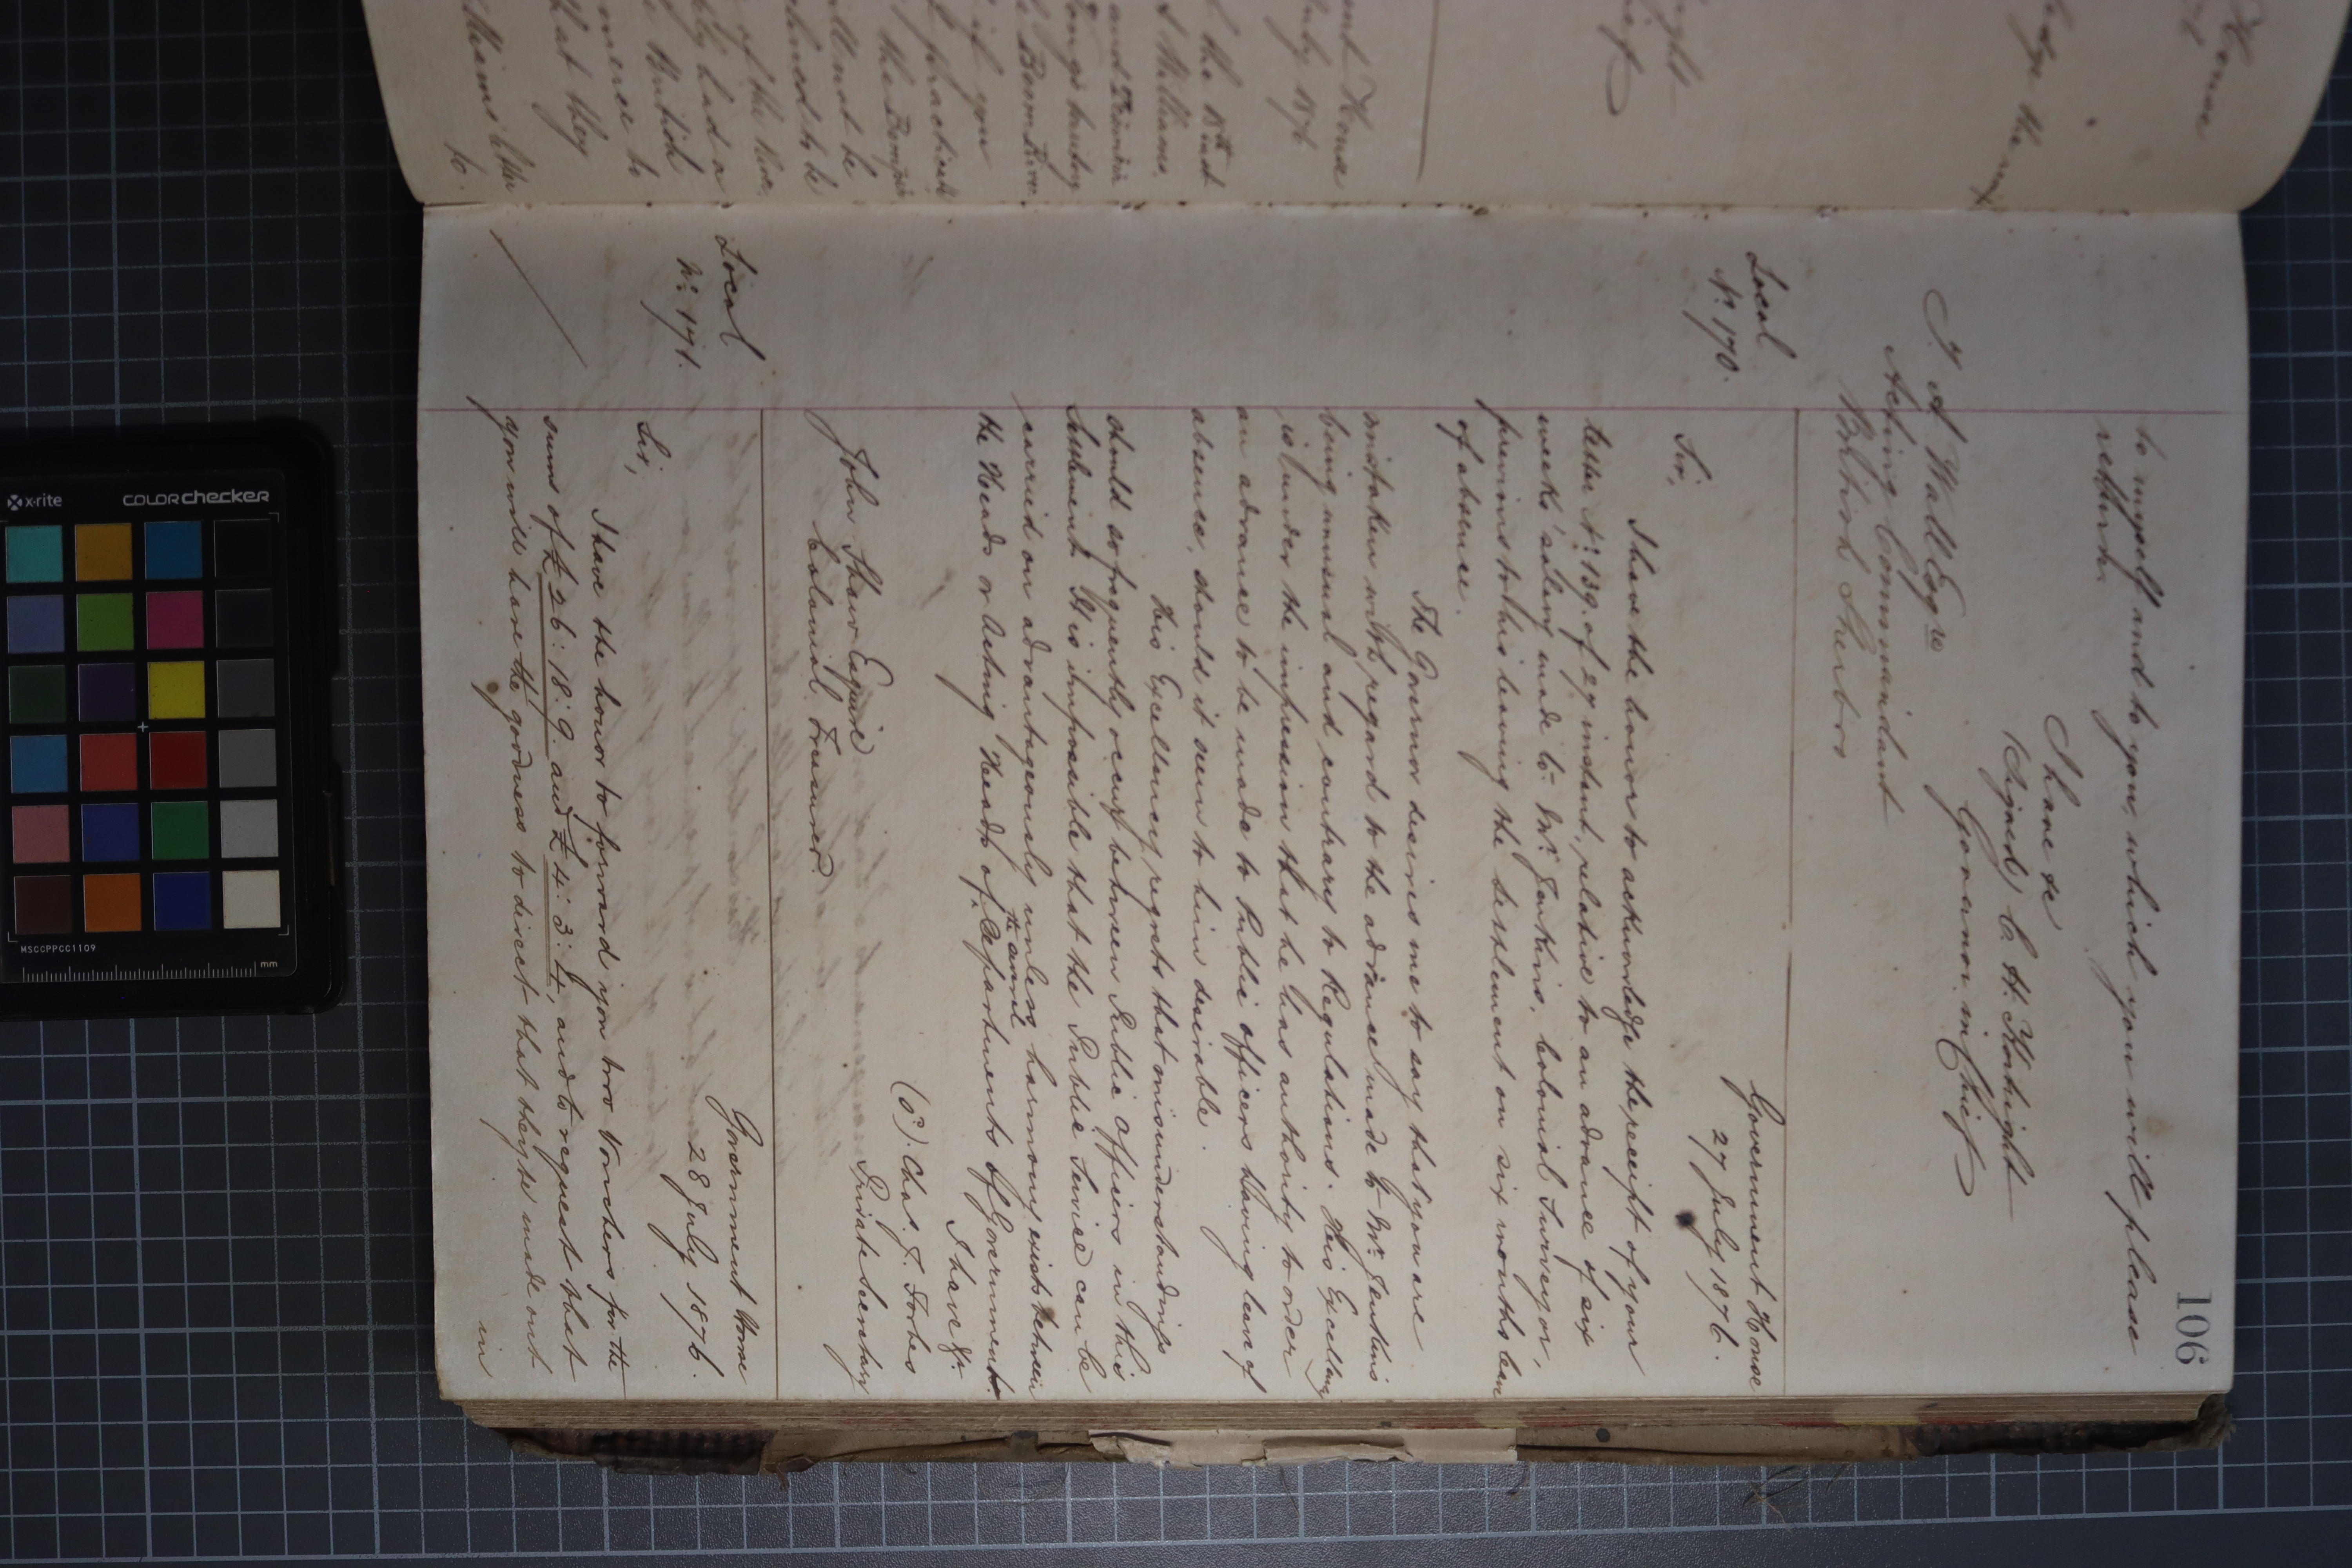 106
to myself and to you, which you will please
return.
I have &c
(Signed) C. H. Kortright
Governor in Chief
J. A. Wall Esqre
Acting Commandant
British Sherbro
Local
No. 170.
Government House
27 July 1876.
Sir,
I have the honor to acknowledge the receipt of your
letter No. 139. of 27 instant, relative to an advance of six
weeks' salary made to Mr. Jenkins, Colonial Surveyor,
previous to his leaving the Settlement on six months leave
of absence.
The Governor desires me to say that you are
mistaken with regard to the advance made to Mr. Jenkins
being unusual and contrary to Regulations. His Excellency
is under the impression that he has authority to order
an advance to be made to Public Officers having leave of
absence, should it seem to him desirable.
His Excellency regrets that misunderstandings
should so frequently occur between Public Officers in this
Settlement. It is impossible that the Public Service can be
carried on advantageously unless harmony exists between
the several
the Heads or Acting Heads of Departments of Government.
I have &c.
(Sd). Chas. F. Forbes
Private Secretary
John Shaw Esquire
Colonial Treasurer.
Local
No. 171.
Government House
28 July 1876.
Sir,
I have the honor to forward you two Vouchers for the
sums of £26:18:9. and £4:3:4, and to request that
you will have the goodness to direct that they be made out
in
House
ledge the
right
Chief
ment House
July 1876
the 18th Inst
Williams,
and
country
if you
practicable
the
be
to be
of the
had a
British
to
that they
Williams' letter
to.
x-rite
COLORchecker
MSCCPPCC1109
mm